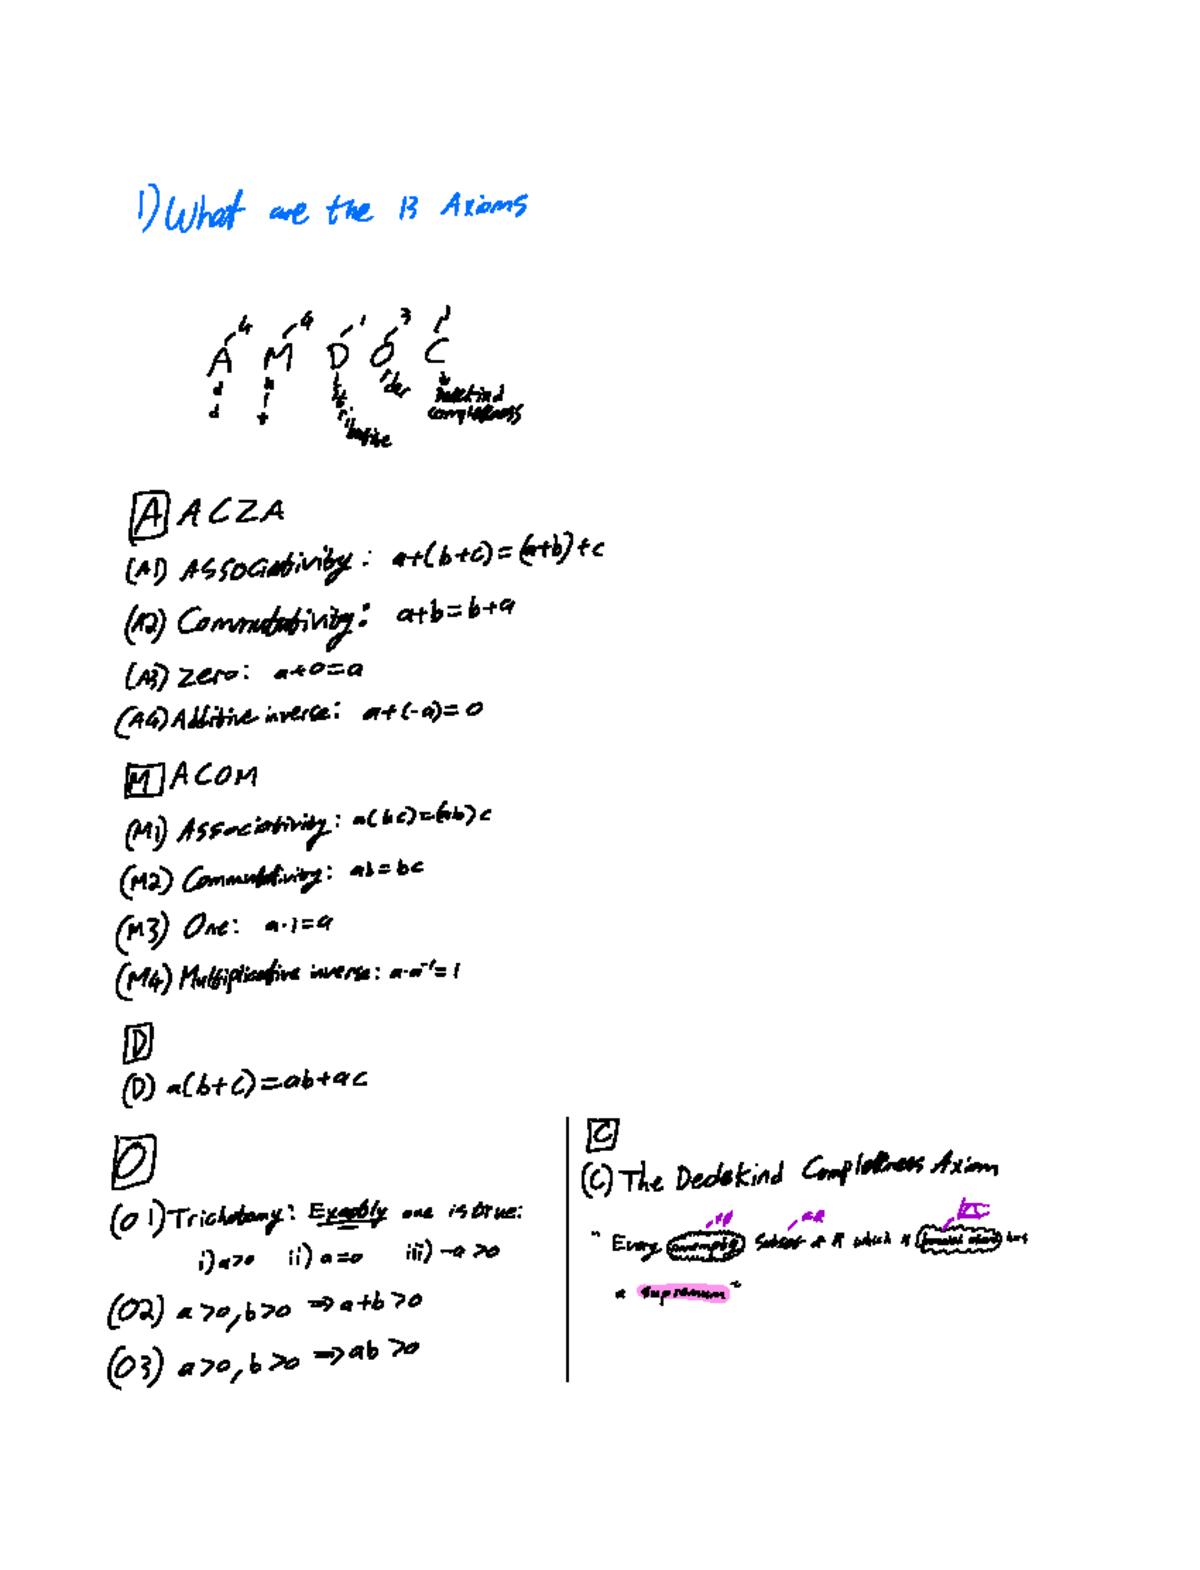 1) What are the 13 Axioms
4 4 1 3 1
A M D O C
dd ult istributive rder Dedekind
completeness
A ACZA
(A1) Associativity: a+(b+c)=(a+b)+c
(A2) Commutativity: a+b=b+a
(A3) Zero: a+0=a
(A4) Additive inverse: a+(-a)=0
M ACOM
(M1) Associativity: a(bc)=(ab)c
(M2) Commutativity: ab=bc
(M3) One: a·1=a
(M4) Multiplicative inverse: a·a⁻¹=1
D
(D) a(b+c)=ab+ac
O
(O1) Trichotomy: Exactly one is true:
i) a>0 ii) a=0 iii) -a>0
(O2) a>0, b>0 ⇒ a+b>0
(O3) a>0, b>0 ⇒ ab>0
C
(C) The Dedekind Completeness Axiom
≠∅ ⊆R
"Every nonempty subset of R which is bounded above has
a supremum"